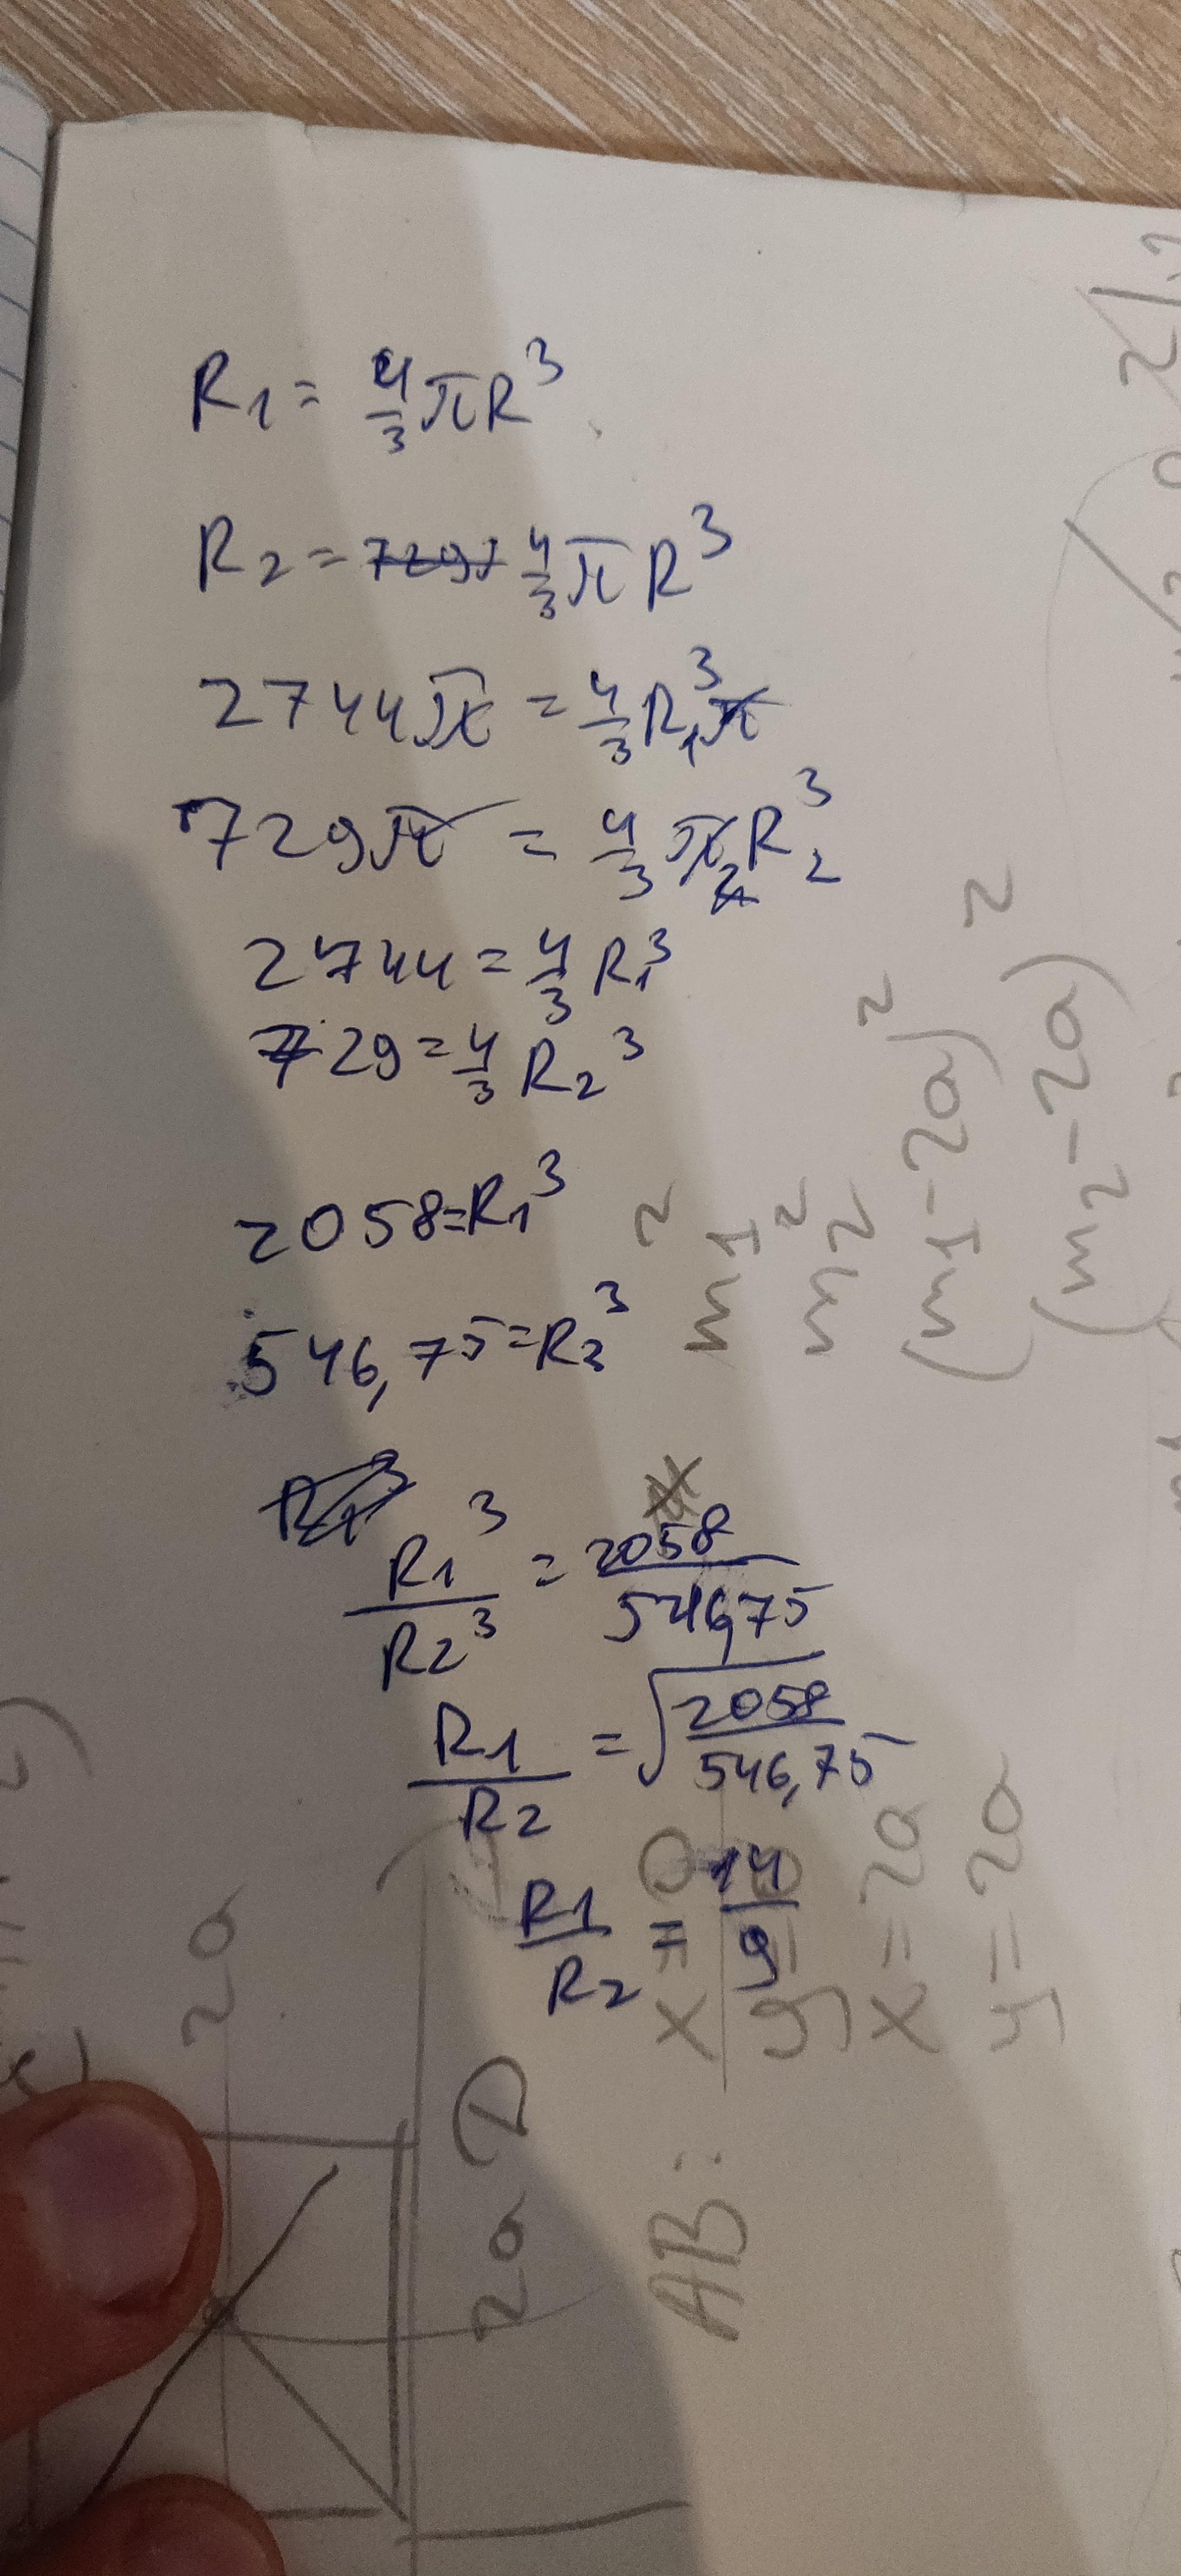 R1 = 4/3 πR³
R2 = 4/3 πR³
2744π = 4/3 R1³π
729π = 4/3 π R2³
2744 = 4/3 R1³
729 = 4/3 R2³
2058 = R1³
546,75 = R2³
R1³/R2³ = 2058/546,75
R1/R2 = √(2058/546,75)
R1/R2 = 14/9
m1²
m2²
(m1-2a)²
(m2-2a)²
AB:
x=0
y=0
x=2a
y=2a
2a
2a
D